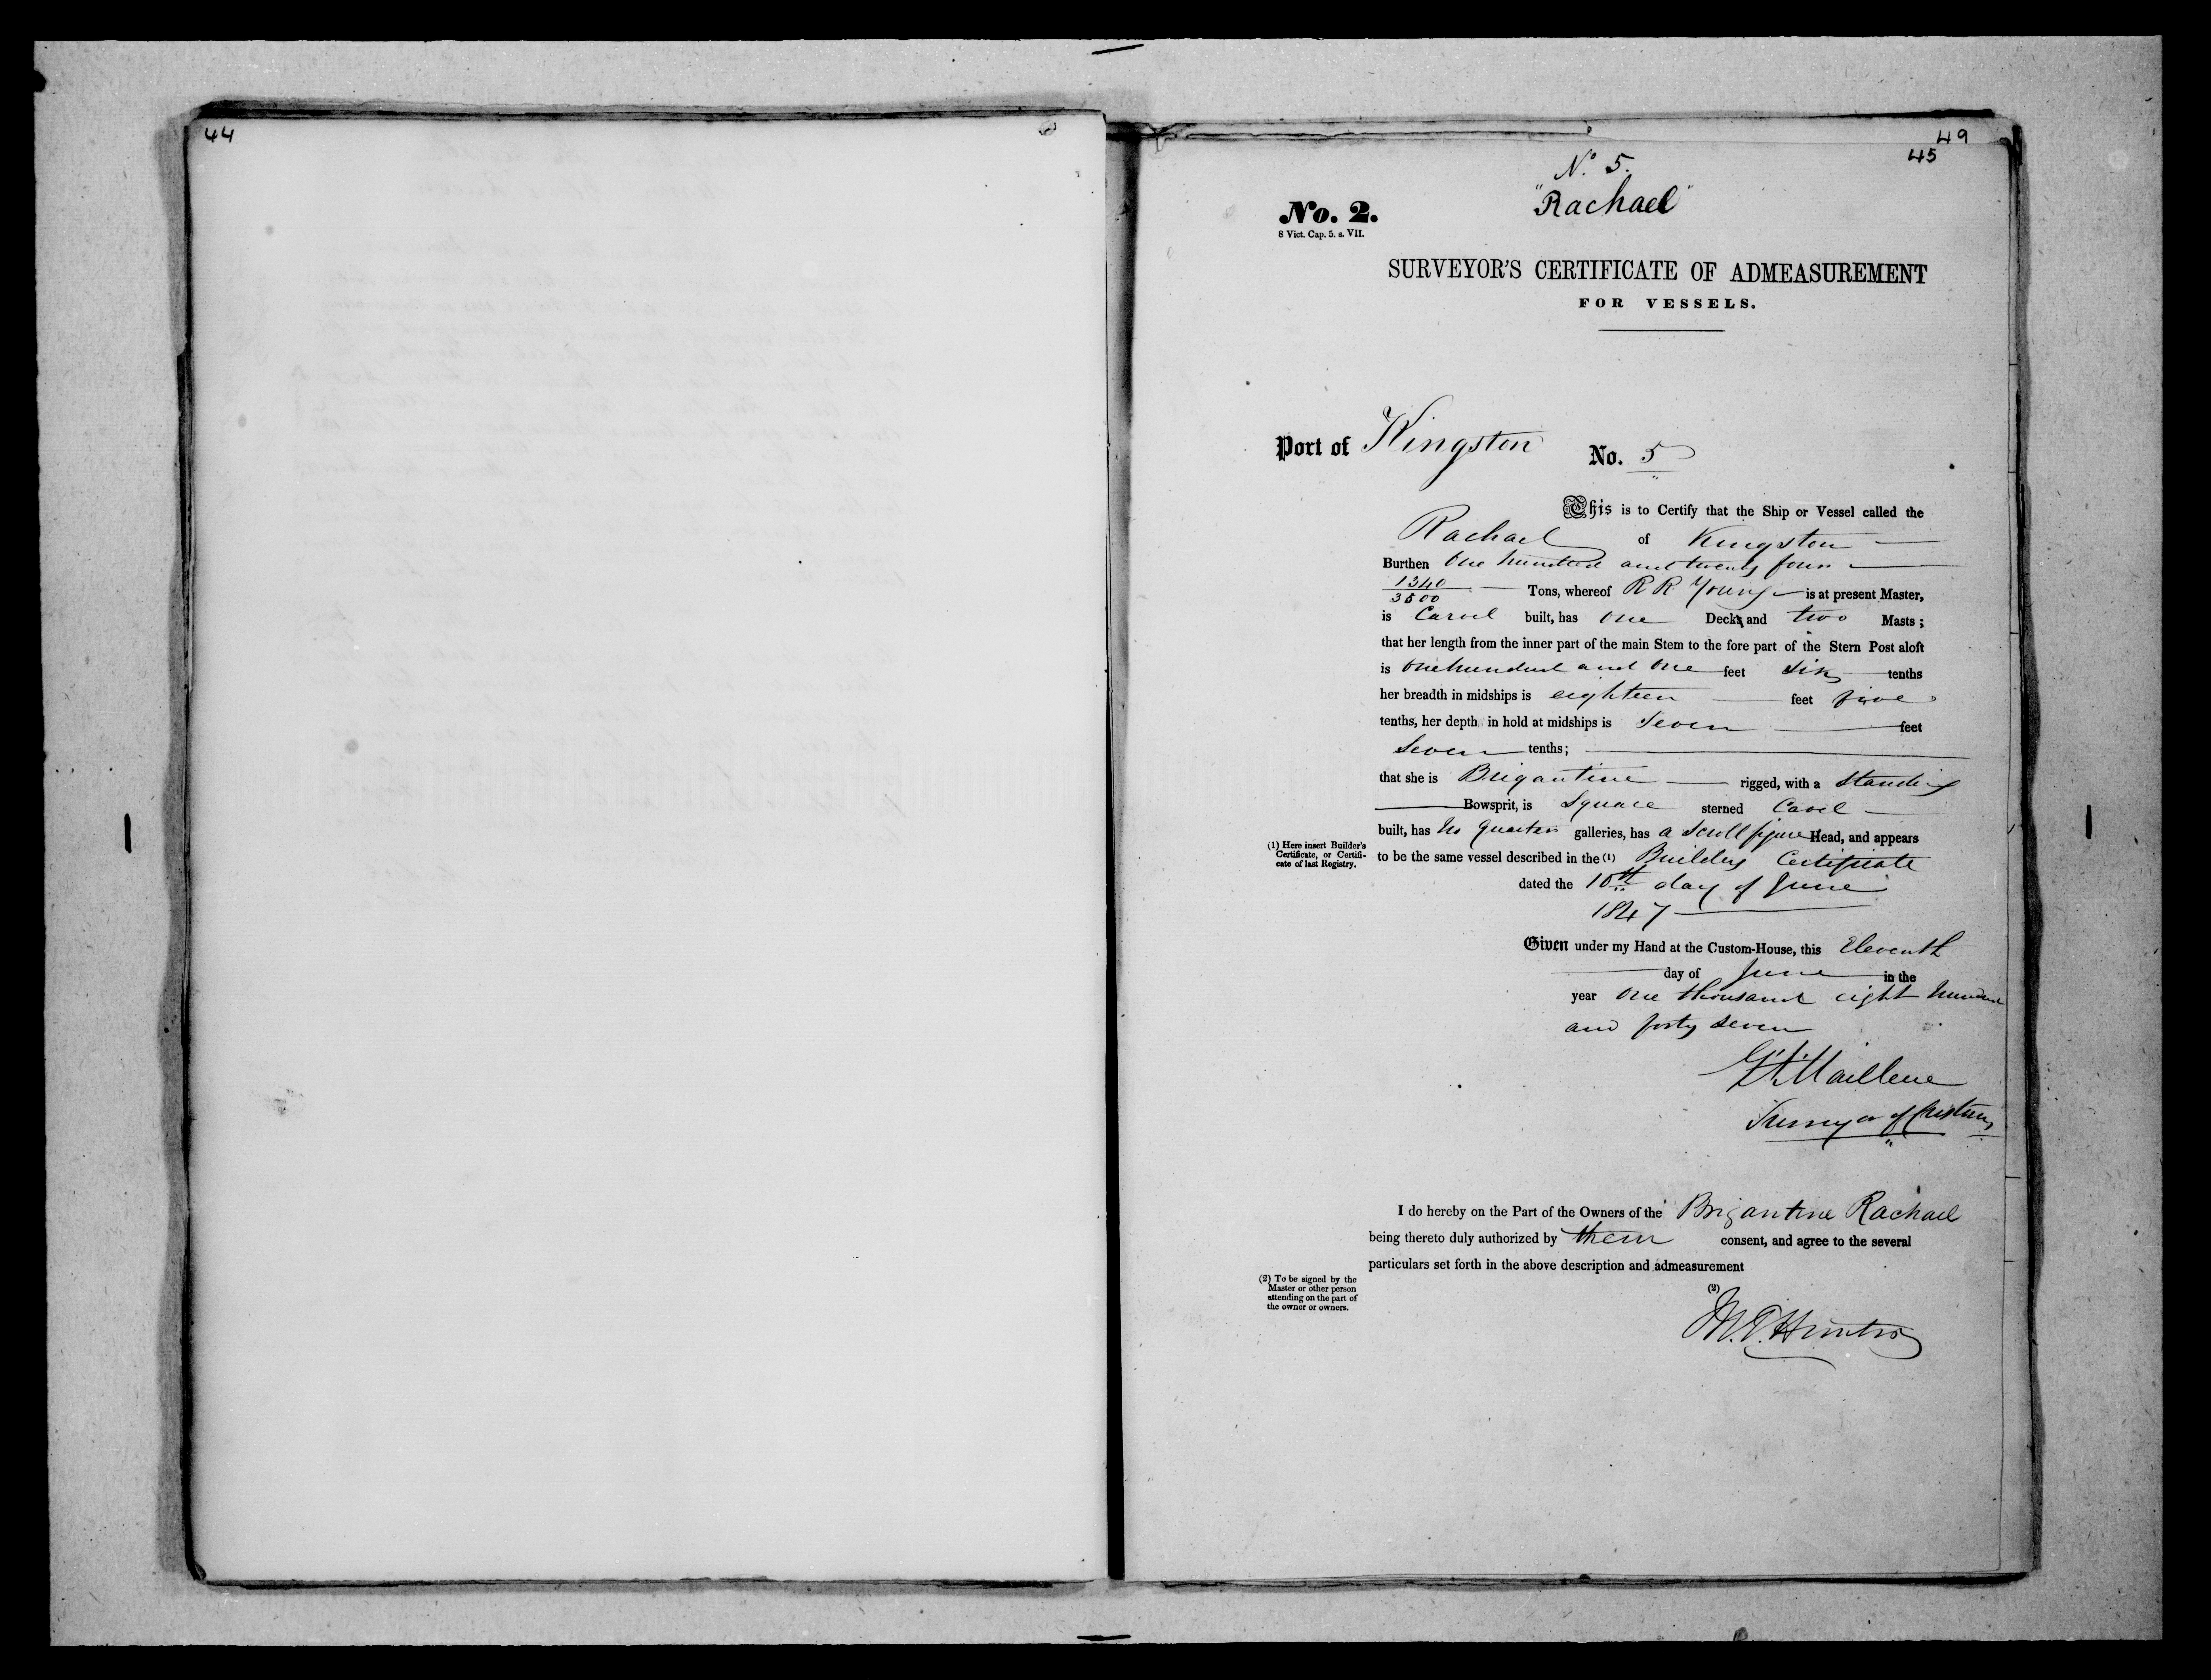 44
49
45
No. 5.
"Rachael"
No. 2.
8 Vict. Cap. 5. s. VII.
SURVEYOR'S CERTIFICATE OF ADMEASUREMENT
FOR VESSELS.
Port of Kingston No. 5
This is to Certify that the Ship or Vessel called the
Rachael of Kingston
Burthen One hundred and twenty four
1340/3500 Tons, whereof R R Young is at present Master,
is Carvel built, has one Deck and two Masts;
that her length from the inner part of the main Stem to the fore part of the Stern Post aloft
is One hundred and One feet Six tenths
her breadth in midships is eighteen feet five
tenths, her depth in hold at midships is Seven feet
Seven tenths;
that she is Brigantine rigged, with a Standing
Bowsprit, is Square sterned Cavel
built, has No Quarter galleries, has a Scroll figure Head, and appears
(1) Here insert Builder's
Certificate, or Certifi-
cate of last Registry.
to be the same vessel described in the (1) Builders Certificate
dated the 10th day of June
1847
Given under my Hand at the Custom-House, this Eleventh
day of June in the
year One thousand eight hundred
and forty seven
Surveyor of Customs
I do hereby on the Part of the Owners of the Brigantine Rachael
being thereto duly authorized by them consent, and agree to the several
particulars set forth in the above description and admeasurement
(2) To be signed by the
Master or other person
attending on the part of
the owner or owners.
(2)
M. T. Hunter